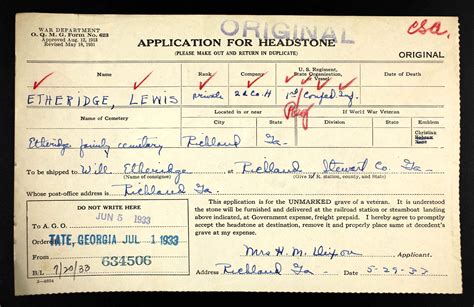 WAR DEPARTMENT
O. Q. M. G. Form No. 623
Approved Aug. 12, 1933
Revised May 18, 1931
ORIGINAL
CSA
APPLICATION FOR HEADSTONE
(PLEASE MAKE OUT AND RETURN IN DUPLICATE)
ORIGINAL
Name
Rank
Company
U. S. Regiment,
State Organization,
Date of Death
ETHERIDGE, LEWIS
Private
Co. H
Confed Inf.
Name of Cemetery
Located in or near
If World War Veteran
City
State
Division
State
Emblem
Christian
Hebrew
None
Etheridge family cemetery
Richland
Ga
To be shipped to Will Etheridge at Richland Stewart Co. Ga
(Name of consignee)
(Give R. R. station, county, and State)
Whose post-office address is Richland Ga.
DO NOT WRITE HERE
JUN 5 1933
To A. G. O.
TATE, GEORGIA JUL 1 1933
Ordered
From
634506
B/L 7/20/33
This application is for the UNMARKED grave of a veteran. It is understood
the stone will be furnished and delivered at the railroad station or steamboat landing
above indicated, at Government expense, freight prepaid. I hereby agree to promptly
accept the headstone at destination, remove it and properly place same at decedent's
grave at my expense.
Mrs H. M. Dixon
Applicant
Address Richland Ga
Date 5-29-33